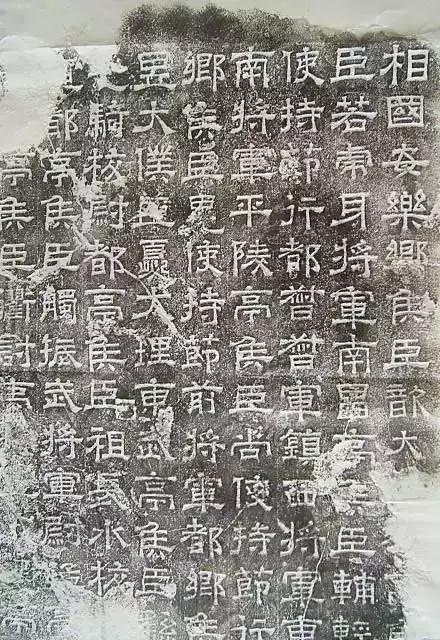 相國安樂鄉侯臣歆太
臣若虎牙將軍南昌亭侯臣輔輕
使持節行都督督軍鎮西將軍東
南將軍平陵亭侯臣尚使持節行
鄉侯臣晃使持節前將軍都鄉侯
昱大僕臣夔大理東武亭侯臣繇
騎校尉都亭侯臣祖長水校
都亭侯臣觸振武將軍尉猛亭
亭侯臣衢討夷